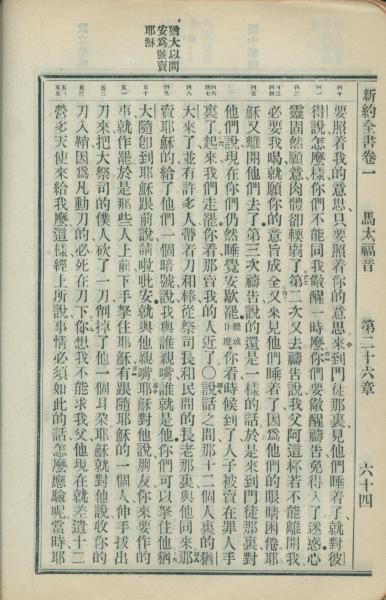 新約全書卷一 馬太福音 第二十六章 六十四
要照着我的意思只要照着你的意思來到門徒那裏見他們睡着了就對彼
得說怎麼樣你們不能同我儆醒一時麼你們要儆醒禱告免得入了迷惑心
靈固然願意肉體卻輭弱了第二次又去禱告說我父阿這杯若不能離開我
必要我喝就願你的意旨成全又來見他們睡着了因爲他們的眼睛困倦耶
穌又離開他們去了第三次禱告說的還是一樣的話於是來到門徒那裏對
他們說現在你們仍然睡覺安歇罷你看時候到了人子被賣在罪人手
裏了起來我們走罷你看那賣我的人近了〇說話之間那十二個人裏的猶
大來了並有許多人帶着刀和棒從祭司長和民間的長老那裏與他同來那
賣耶穌的給了他們一個暗號說我與誰親嘴誰就是他你們可以拏住他猶
大隨卽到耶穌跟前說請啦吡安就與他親嘴耶穌對他說朋友你來要作的
事就作罷於是那些人上前下手拏住耶穌有跟隨耶穌的一個人伸手拔出
刀來把大祭司的僕人砍了一刀削掉了他一個耳朶耶穌就對他說收你的
刀入鞘因爲凡動刀的必死在刀下你想我不能求我父他現在就差遣十二
營多天使來給我麼這樣經上所說事情必須如此的話怎麼應驗呢當時耶
猶大以問
安爲號賣
耶穌